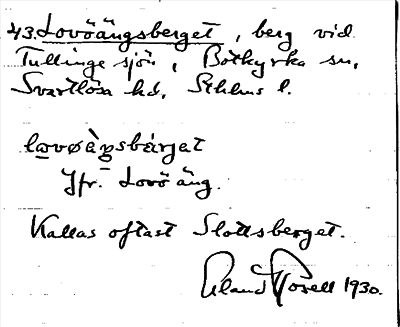 43. Lovöängsberget, berg vid
Tullinge sjön, Botkyrka sn,
Svartlösa hd, Sthlms l.
lovøàŋsbárjat
Jfr. Lovö äng.
Kallas oftast Slottsberget.
Erland Rosell 1930.